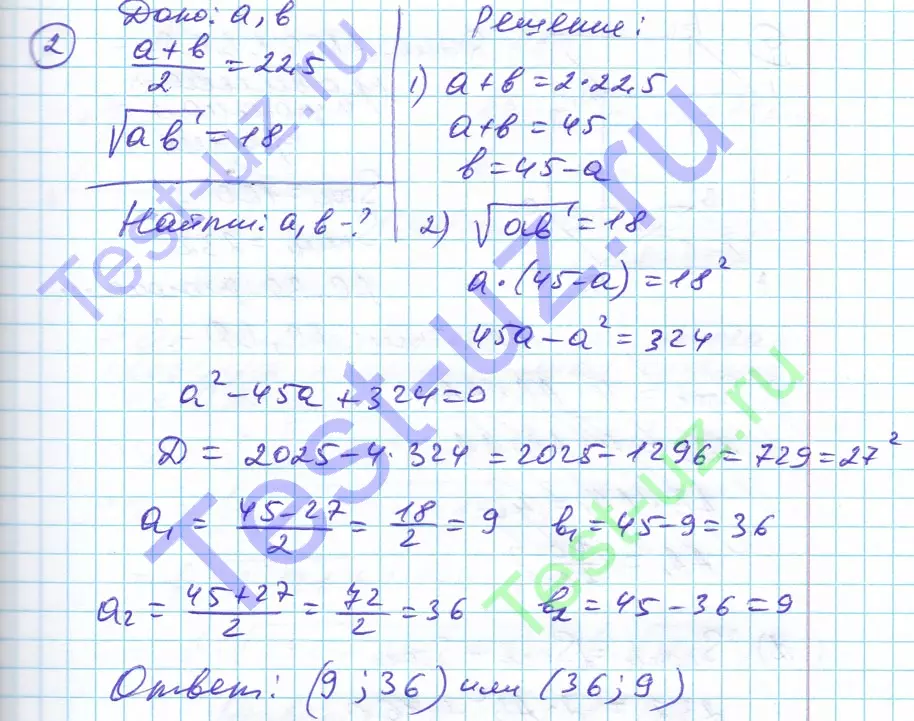 2
Дано: a, b
(a+b)/2 = 22,5
√ab = 18
Найти: a, b - ?
Решение:
1) a+b = 2·22,5
a+b = 45
b = 45-a
2) √ab = 18
a·(45-a) = 18²
45a - a² = 324
a² - 45a + 324 = 0
D = 2025 - 4·324 = 2025 - 1296 = 729 = 27²
a₁ = (45-27)/2 = 18/2 = 9 b₁ = 45-9 = 36
a₂ = (45+27)/2 = 72/2 = 36 b₂ = 45-36 = 9
Ответ: (9; 36) или (36; 9)
Test-uz.ru
Test-uz.ru
Test-uz.ru